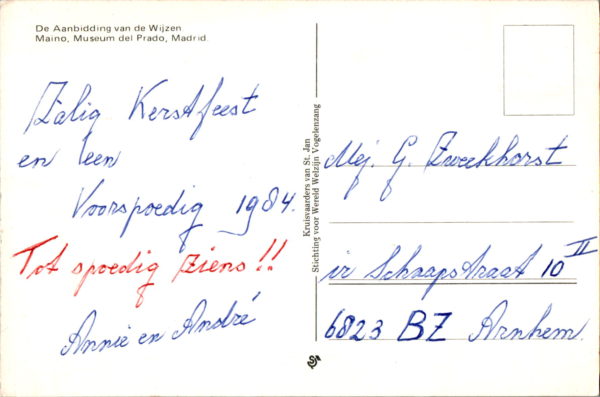 De Aanbidding van de Wijzen
Maino, Museum del Prado, Madrid.
Zalig Kerstfeest
en een
Voorspoedig 1984.
Tot spoedig ziens!!
Annie en André
Kruisvaarders van St. Jan
Stichting voor Wereld Welzijn Vogelenzang
Mej. G. Zweekhorst
ir Schaapstraat 10 II
6823 BZ Arnhem.